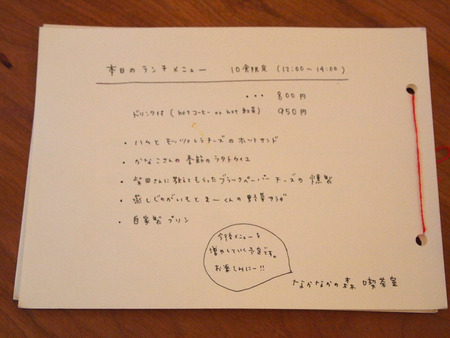 本日のランチメニュー 10食限定 (12:00〜14:00)
・・・ 800円
ドリンク付 (hot コーヒー or hot 紅茶) 950円
・ハムとモッツァレラチーズのホットサンド
・かなこさんの季節のラタトゥイユ
・柴田さんに教えてもらったブラックペーパーチーズの燻製
・蒸しじゃがいもとまーくんの野菜サラダ
・自家製プリン
今後メニューを
増やしていく予定です。
お楽しみにー!!
なかなかの森 喫茶室